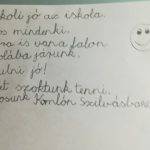 koli jó az iskola.
os mindenki.
ra is van a falon
olába járunk.
ulni jó!
et szoktunk tenni.
osunk Komlón Szilvásban